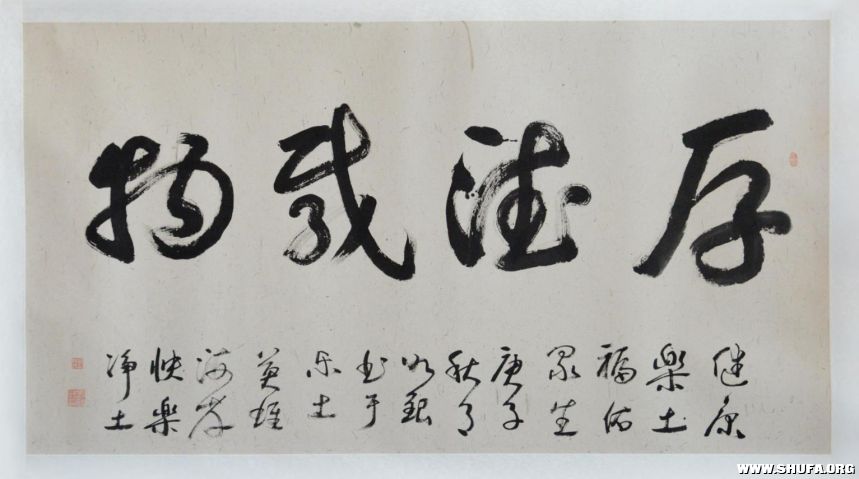 厚德載物
健康
樂土
福佑
眾生
庚子
秋月
书于
乐土
英雄
快樂
净土
WWW.SHUFA.ORG